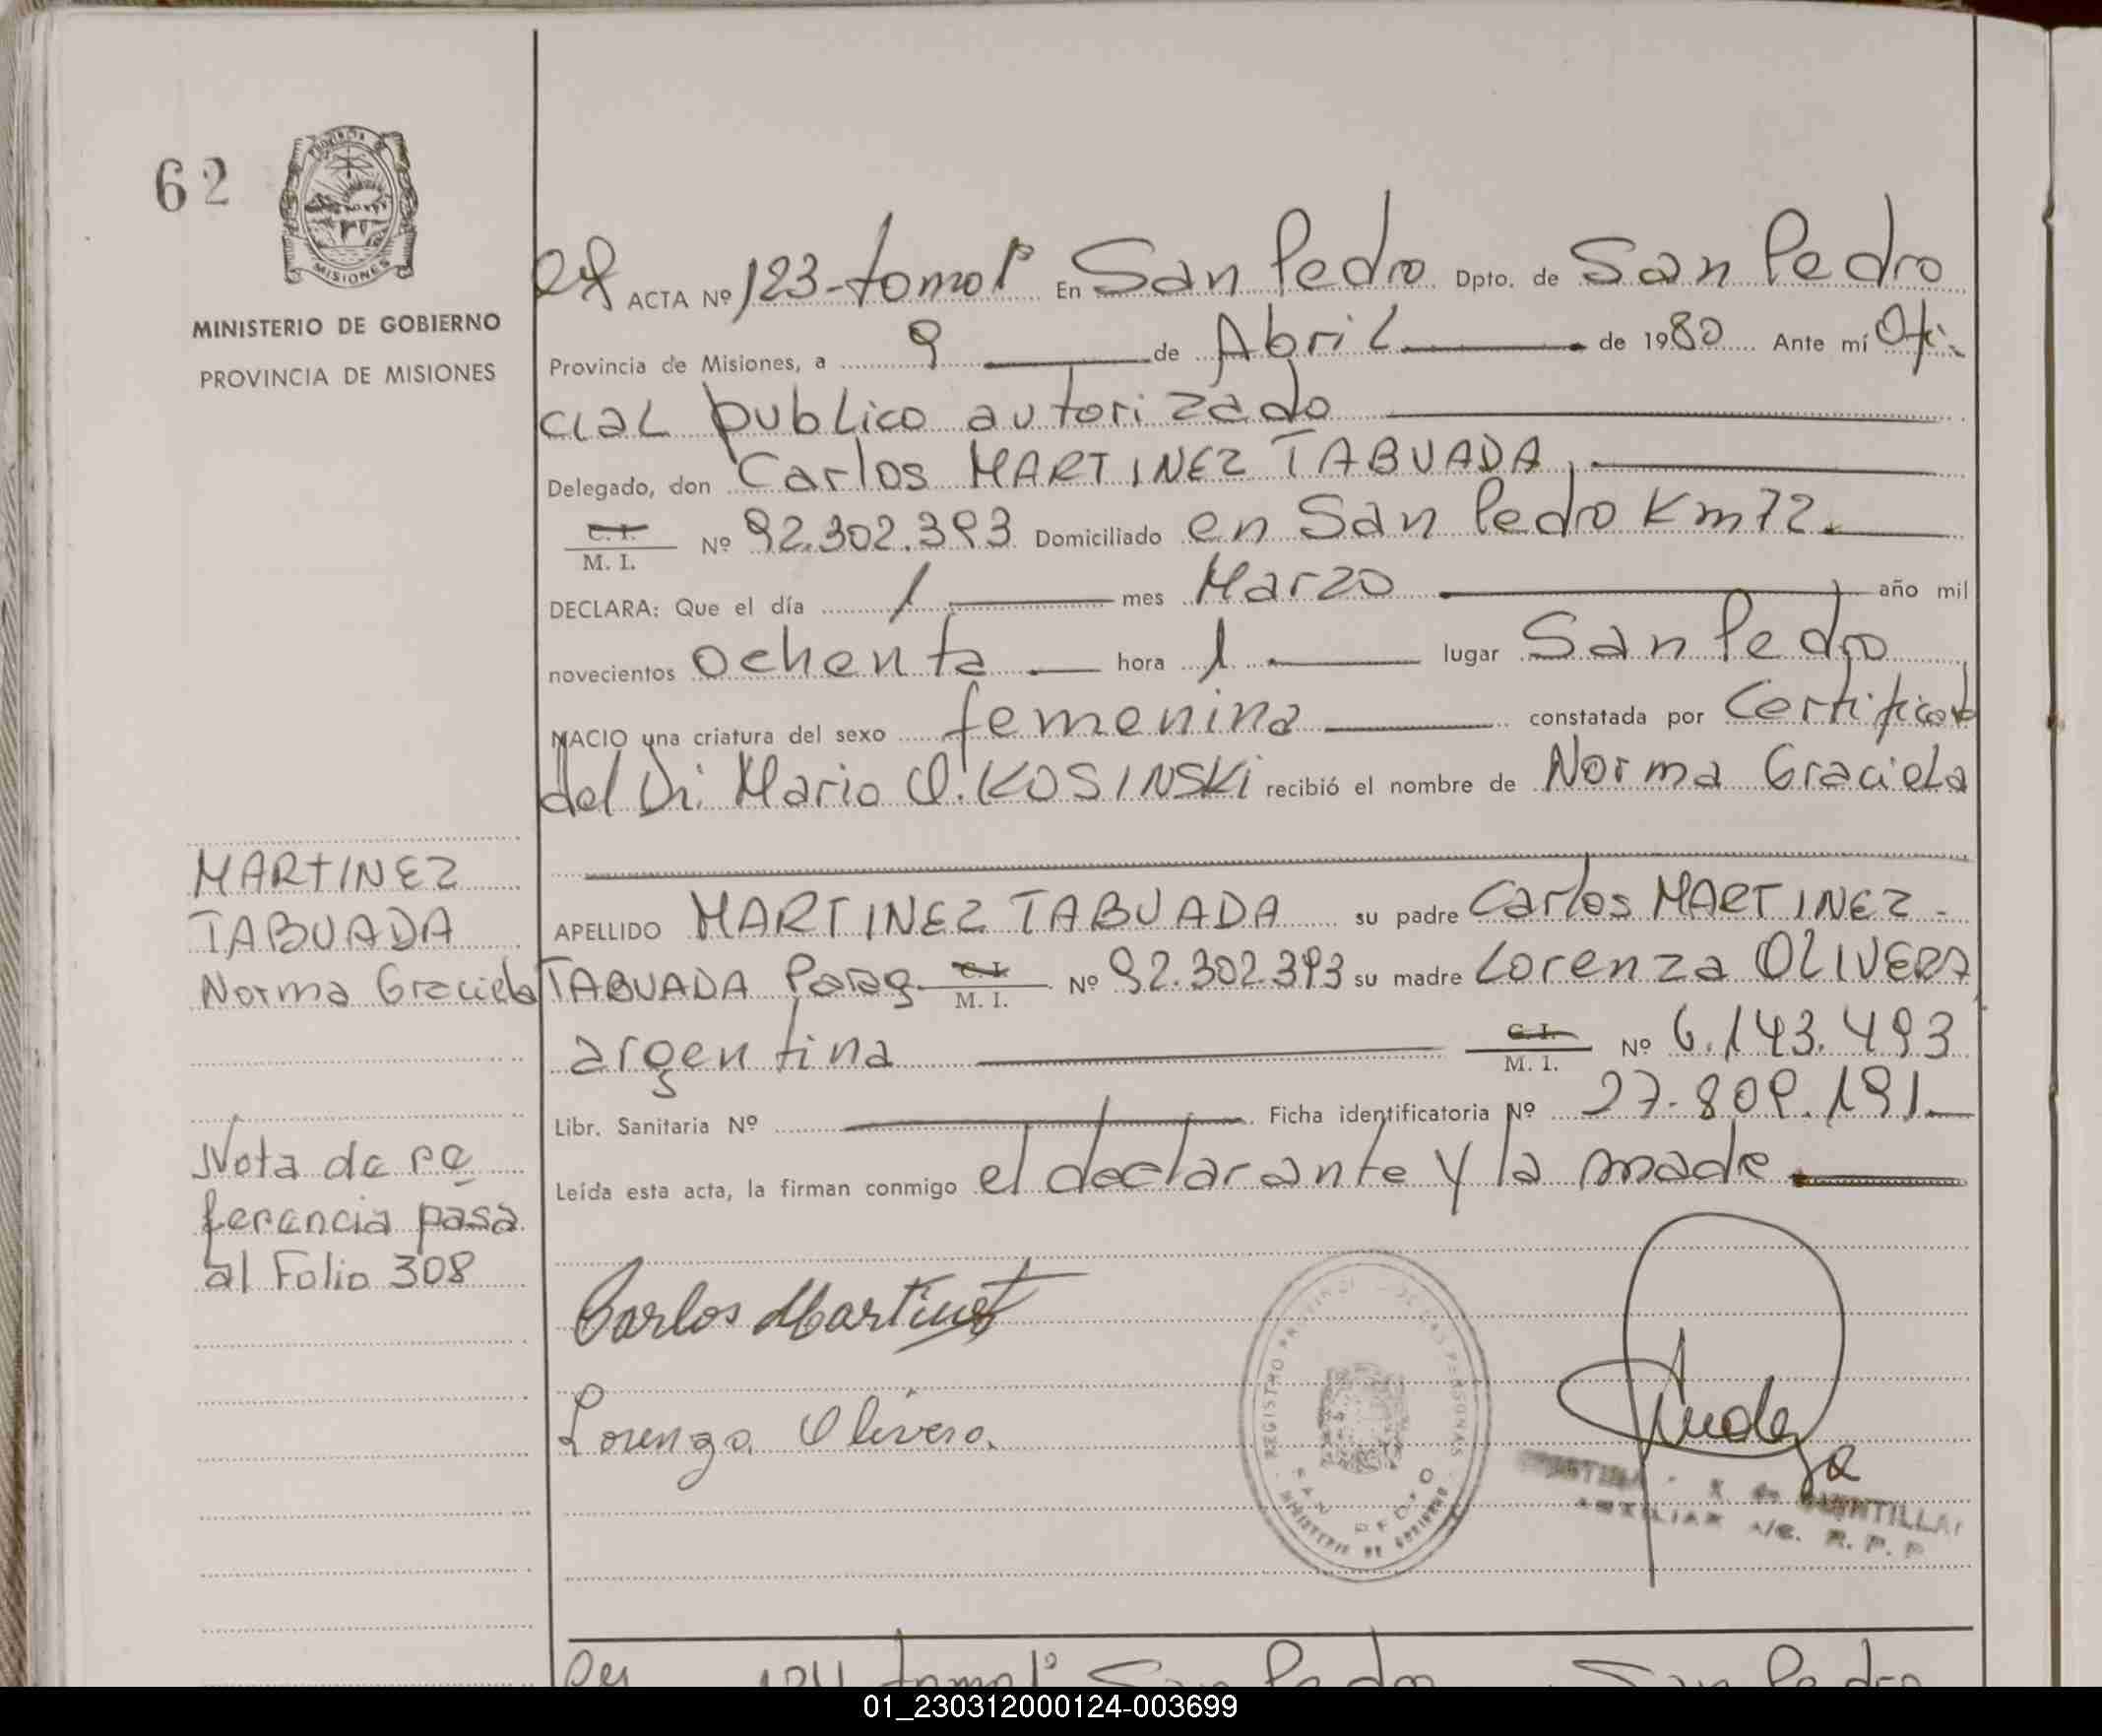 62
PROVINCIA
MISIONES
MINISTERIO DE GOBIERNO
PROVINCIA DE MISIONES
ACTA Nº 123-tomo 1º En San Pedro Dpto. de San Pedro
Provincia de Misiones, a 9 de Abril de 1980 Ante mí Ofi-
cial publico autorizado
Delegado, don Carlos MARTINEZ TABUADA,
C. I.
M. I. Nº 92.302.393 Domiciliado en San Pedro Km 72.
DECLARA: Que el día 1 mes Marzo año mil
novecientos ochenta hora 1 lugar San Pedro
NACIO una criatura del sexo femenina constatada por Certificado
del Dr. Mario O. KOSINSKI recibió el nombre de Norma Graciela
MARTINEZ
TABUADA
Norma Graciela
APELLIDO MARTINEZ TABUADA su padre Carlos MARTINEZ -
TABUADA Parag. C. I.
M. I. Nº 92.302.393 su madre Lorenza OLIVERA
argentina C. I.
M. I. Nº 6.143.493
Libr. Sanitaria Nº Ficha identificatoria Nº 27.809.191
Leída esta acta, la firman conmigo el declarante y la madre
Nota de re
ferencia pasa
al Folio 308
Carlos Martinez
Lorenza Olivera.
REGISTRO DE LAS PERSONAS
SAN PEDRO
MINISTERIO DE GOBIERNO
AUXILIAR A/C. R. P. P
124 tomo 1º San Pedro San Pedro
01_230312000124-003699